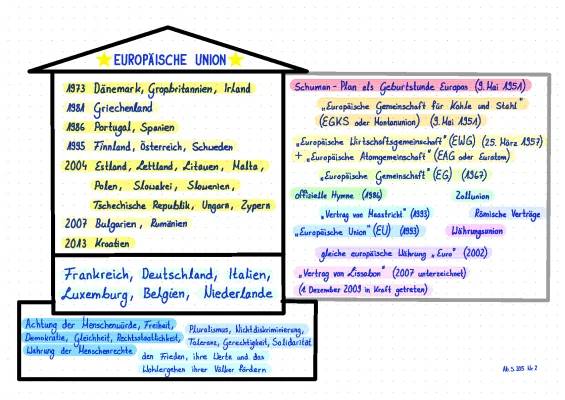 EUROPÄISCHE UNION
1973 Dänemark, Großbritannien, Irland
1981 Griechenland
1986 Portugal, Spanien
1995 Finnland, Österreich, Schweden
2004 Estland, Lettland, Litauen, Malta,
Polen, Slowakei, Slowenien,
Tschechische Republik, Ungarn, Zypern
2007 Bulgarien, Rumänien
2013 Kroatien
Frankreich, Deutschland, Italien,
Luxemburg, Belgien, Niederlande
Achtung der Menschenwürde, Freiheit,
Demokratie, Gleichheit, Rechtsstaatlichkeit,
Wahrung der Menschenrechte
Pluralismus, Nichtdiskriminierung,
Toleranz, Gerechtigkeit, Solidarität
den Frieden, ihre Werte und das
Wohlergehen ihrer Völker fördern
Schuman-Plan als Geburtstunde Europas (9. Mai 1951)
„Europäische Gemeinschaft für Kohle und Stahl"
(EGKS oder Montanunion) (9. Mai 1951)
„Europäische Wirtschaftsgemeinschaft" (EWG) (25. März 1957)
+ „Europäische Atomgemeinschaft" (EAG oder Euratom)
„Europäische Gemeinschaft" (EG) (1967)
offizielle Hymne (1986) Zollunion
„Vertrag von Maastricht" (1993) Römische Verträge
„Europäische Union" (EU) (1993) Währungsunion
gleiche europäische Währung „Euro" (2002)
„Vertrag von Lissabon" (2007 unterzeichnet)
(1. Dezember 2009 in Kraft getreten)
Nr. 2